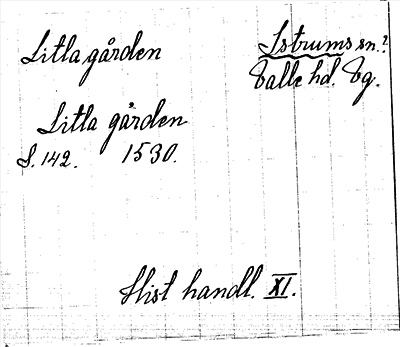 Litla gården
Istrums sn.?
Valle hd. Vg.
Litla gården
S. 142. 1530.
Hist handl. XI.